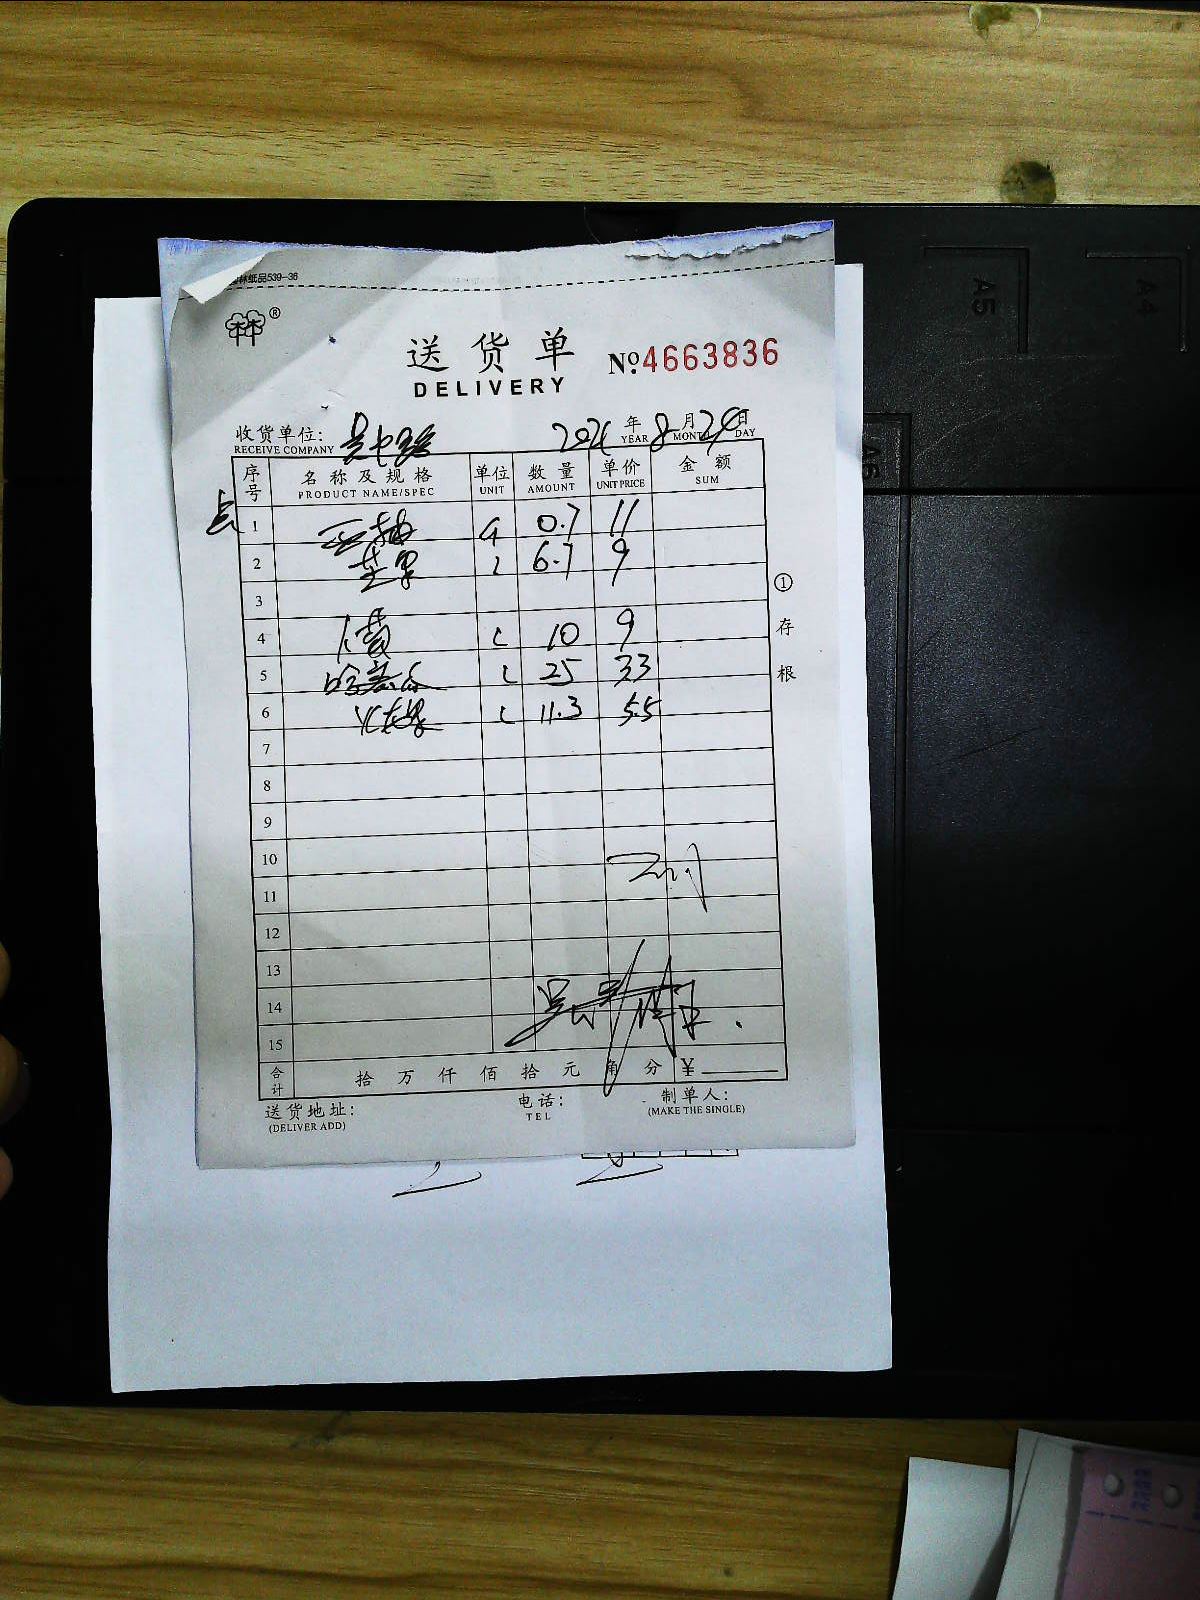 林纸品539-36
®
送货单 No:4663836
DELIVERY
收货单位: 吴中路 年 8月24日
RECEIVE COMPANY YEAR MONTH DAY
序号 名称及规格 单位 数量 单价 金额
PRODUCT NAME/SPEC UNIT AMOUNT UNIT PRICE SUM
1 西柚 0.7 11
2 芒果 6.7 9
3
4 10 9
5 哈密瓜 25 33
6 火龙果 11.3 5.5
7
8
9
10
11
12
13
14
15
合计 拾 万 仟 佰 拾 元 角 分 ¥
送货地址: 电话: 制单人:
(DELIVER ADD) TEL (MAKE THE SINGLE)
① 存根
A5
A4
A6